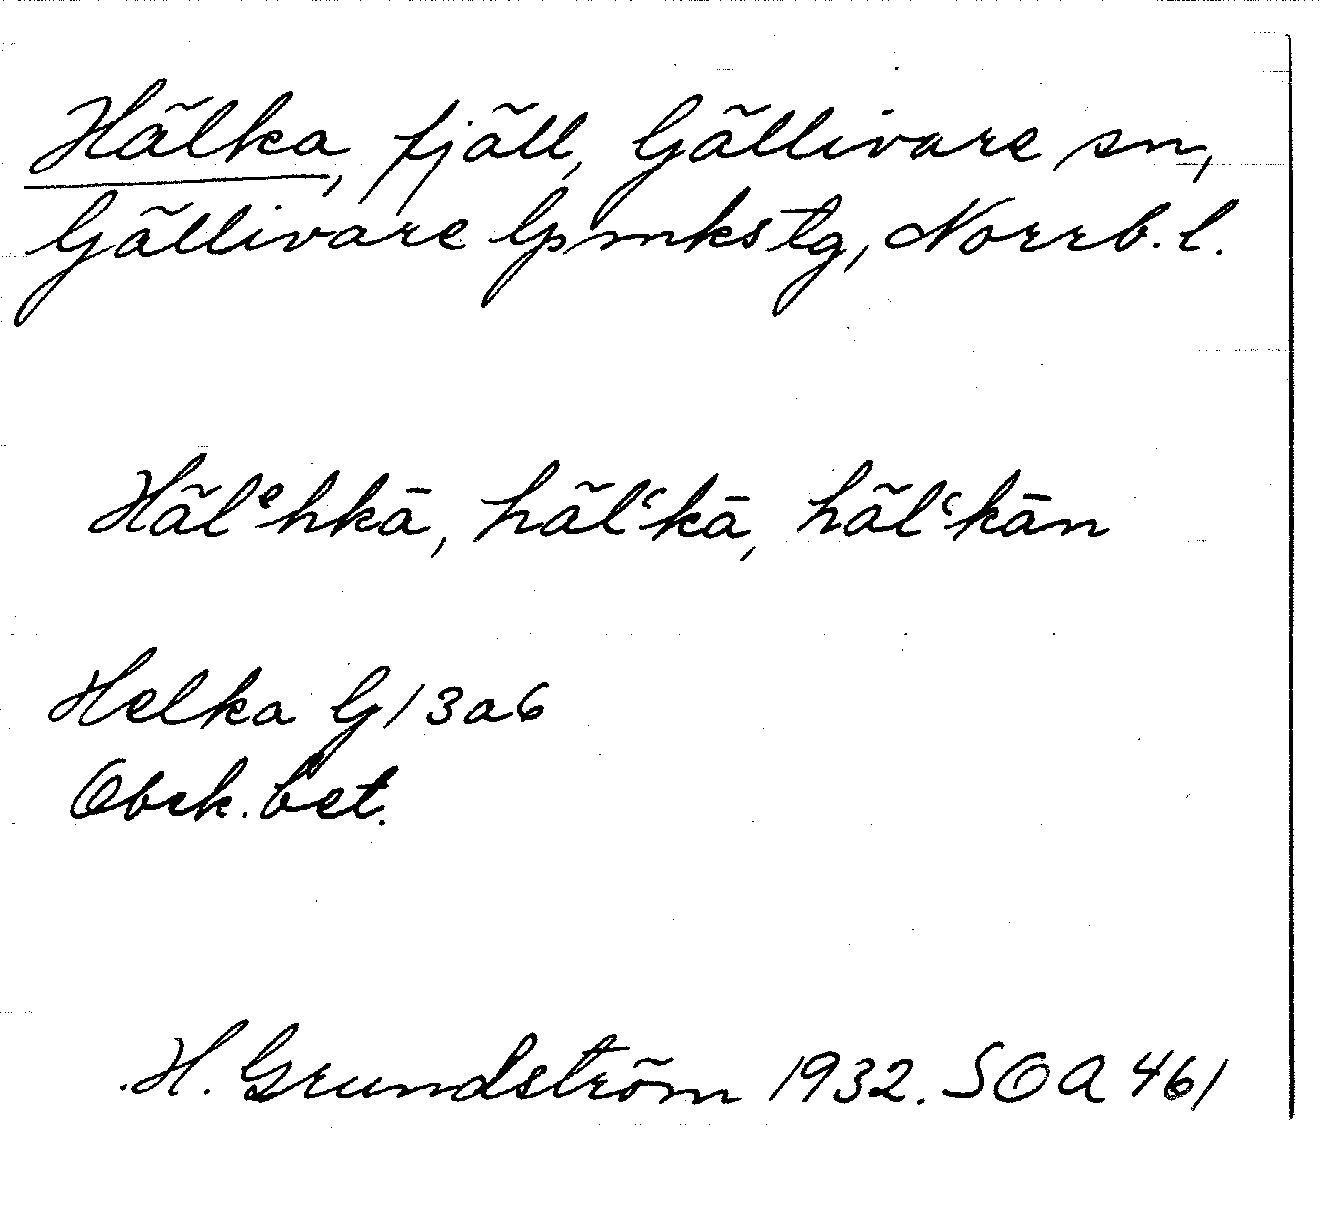 Hälka, fjäll, Gällivare sn,
Gällivare lpmkstg, Norrb. l.
Hälᵉhkā, hälʿkā, hälʿkān
Helka G13a6
Obek. bet.
H. Grundström 1932. SOA 461